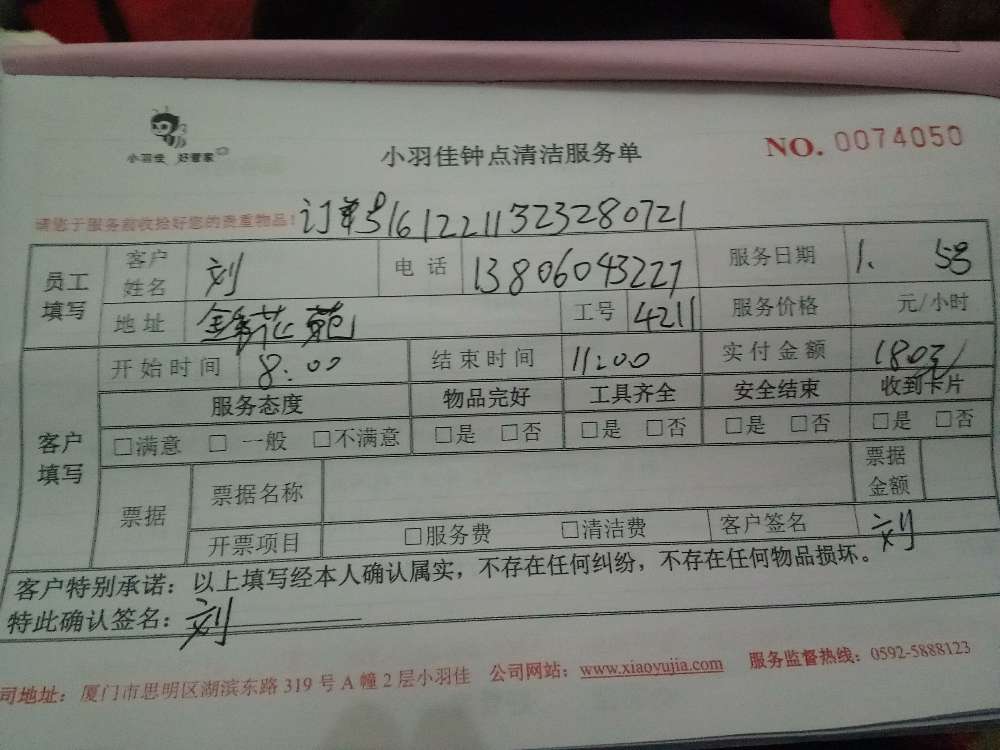 小羽佳 好管家
小羽佳钟点清洁服务单
NO. 0074050
请您于服务前收拾好您的贵重物品！订单号161221132323280721
员工填写 客户姓名 刘 电话 13806043227 服务日期 1.
地址 锦花苑 工号 4211 服务价格 元/小时
客户填写 开始时间 8:00 结束时间 11:00 实付金额
服务态度 物品完好 工具齐全 安全结束 收到卡片
□满意 □一般 □不满意 □是 □否 □是 □否 □是 □否 □是 □否
票据 票据名称 票据金额
开票项目 □服务费 □清洁费 客户签名 刘
客户特别承诺：以上填写经本人确认属实，不存在任何纠纷，不存在任何物品损坏。
特此确认签名：刘
司地址：厦门市思明区湖滨东路 319 号 A 幢 2 层小羽佳 公司网站：www.xiaoyujia.com 服务监督热线：0592-5888123